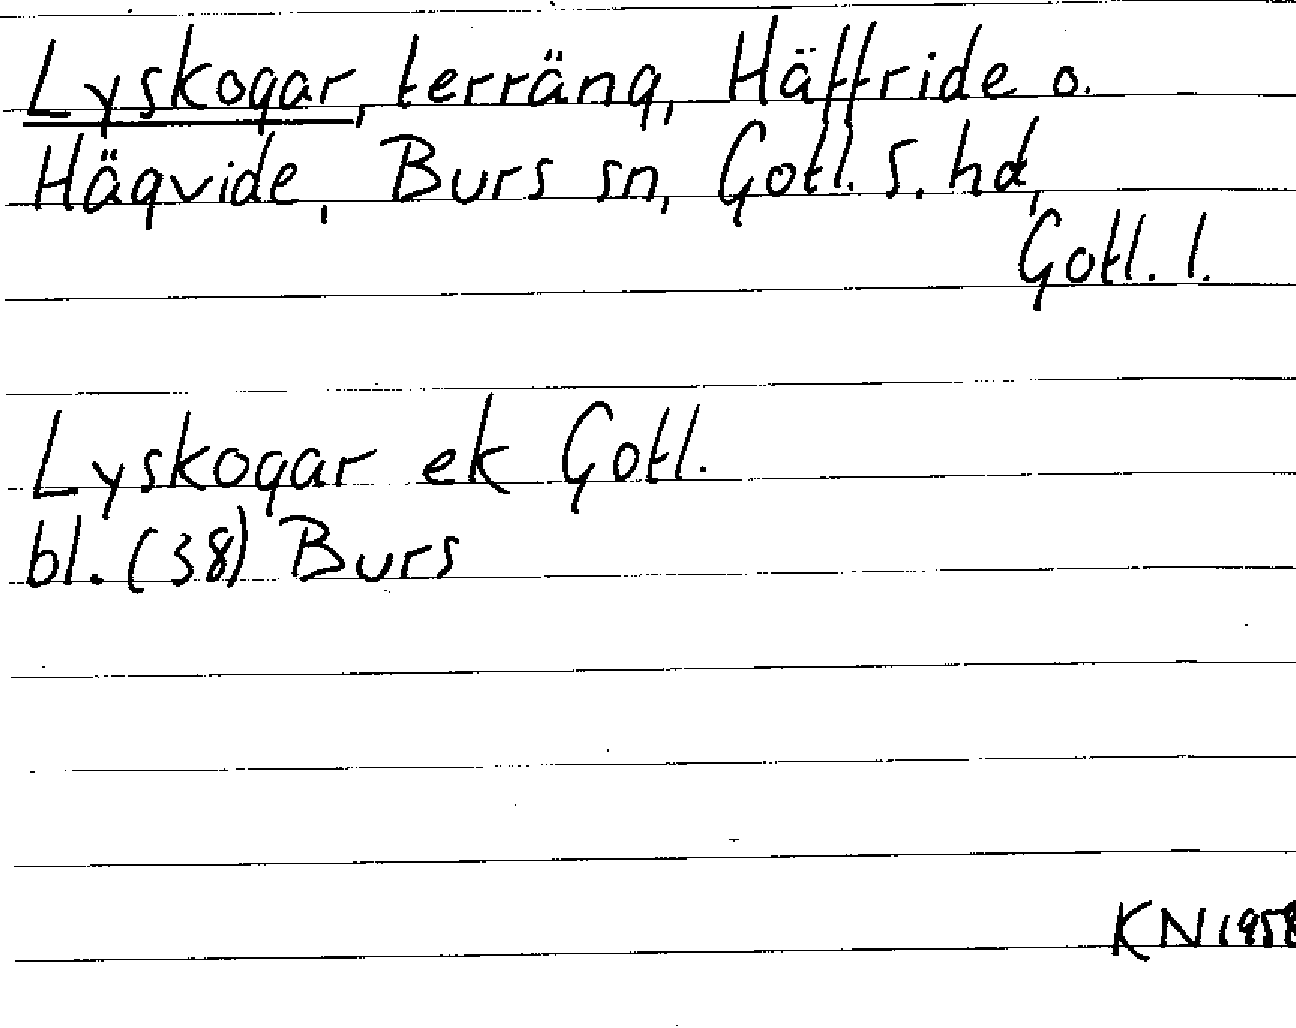 Lyskogar, terräng, Häffride o.
Hägvide, Burs sn, Gotl. S. hd,
Gotl. l.
Lyskogar ek Gotl.
bl. (38) Burs
KN 1958